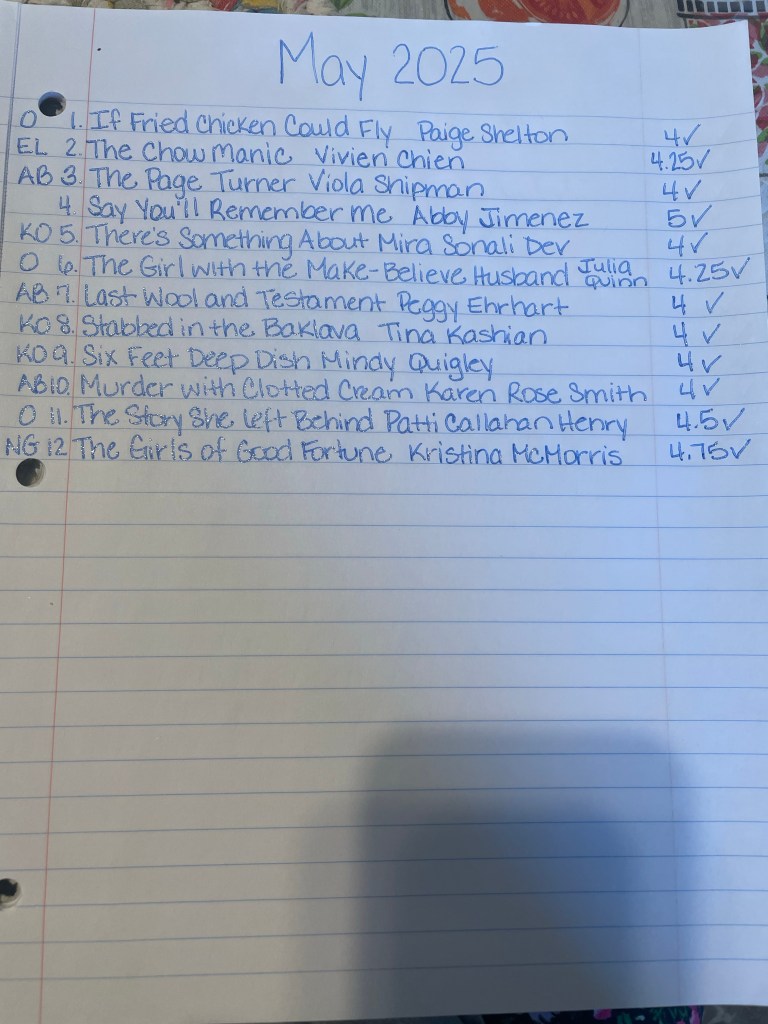 May 2025
O 1. If Fried Chicken Could Fly Paige Shelton 4✓
EL 2. The Chow Maniac Vivien Chien 4.25✓
AB 3. The Page Turner Viola Shipman 4✓
4. Say You'll Remember me Abby Jimenez 5✓
KO 5. There's Something About Mira Sonali Dev 4✓
O 6. The Girl with the Make-Believe Husband Julia Quinn 4.25✓
AB 7. Last Wool and Testament Peggy Ehrhart 4 ✓
KO 8. Stabbed in the Baklava Tina Kashian 4 ✓
KO 9. Six Feet Deep Dish Mindy Quigley 4✓
AB 10. Murder with Clotted Cream Karen Rose Smith 4✓
O 11. The Story She left Behind Patti Callahan Henry 4.5✓
NG 12 The Girls of Good Fortune Kristina McMorris 4.75✓